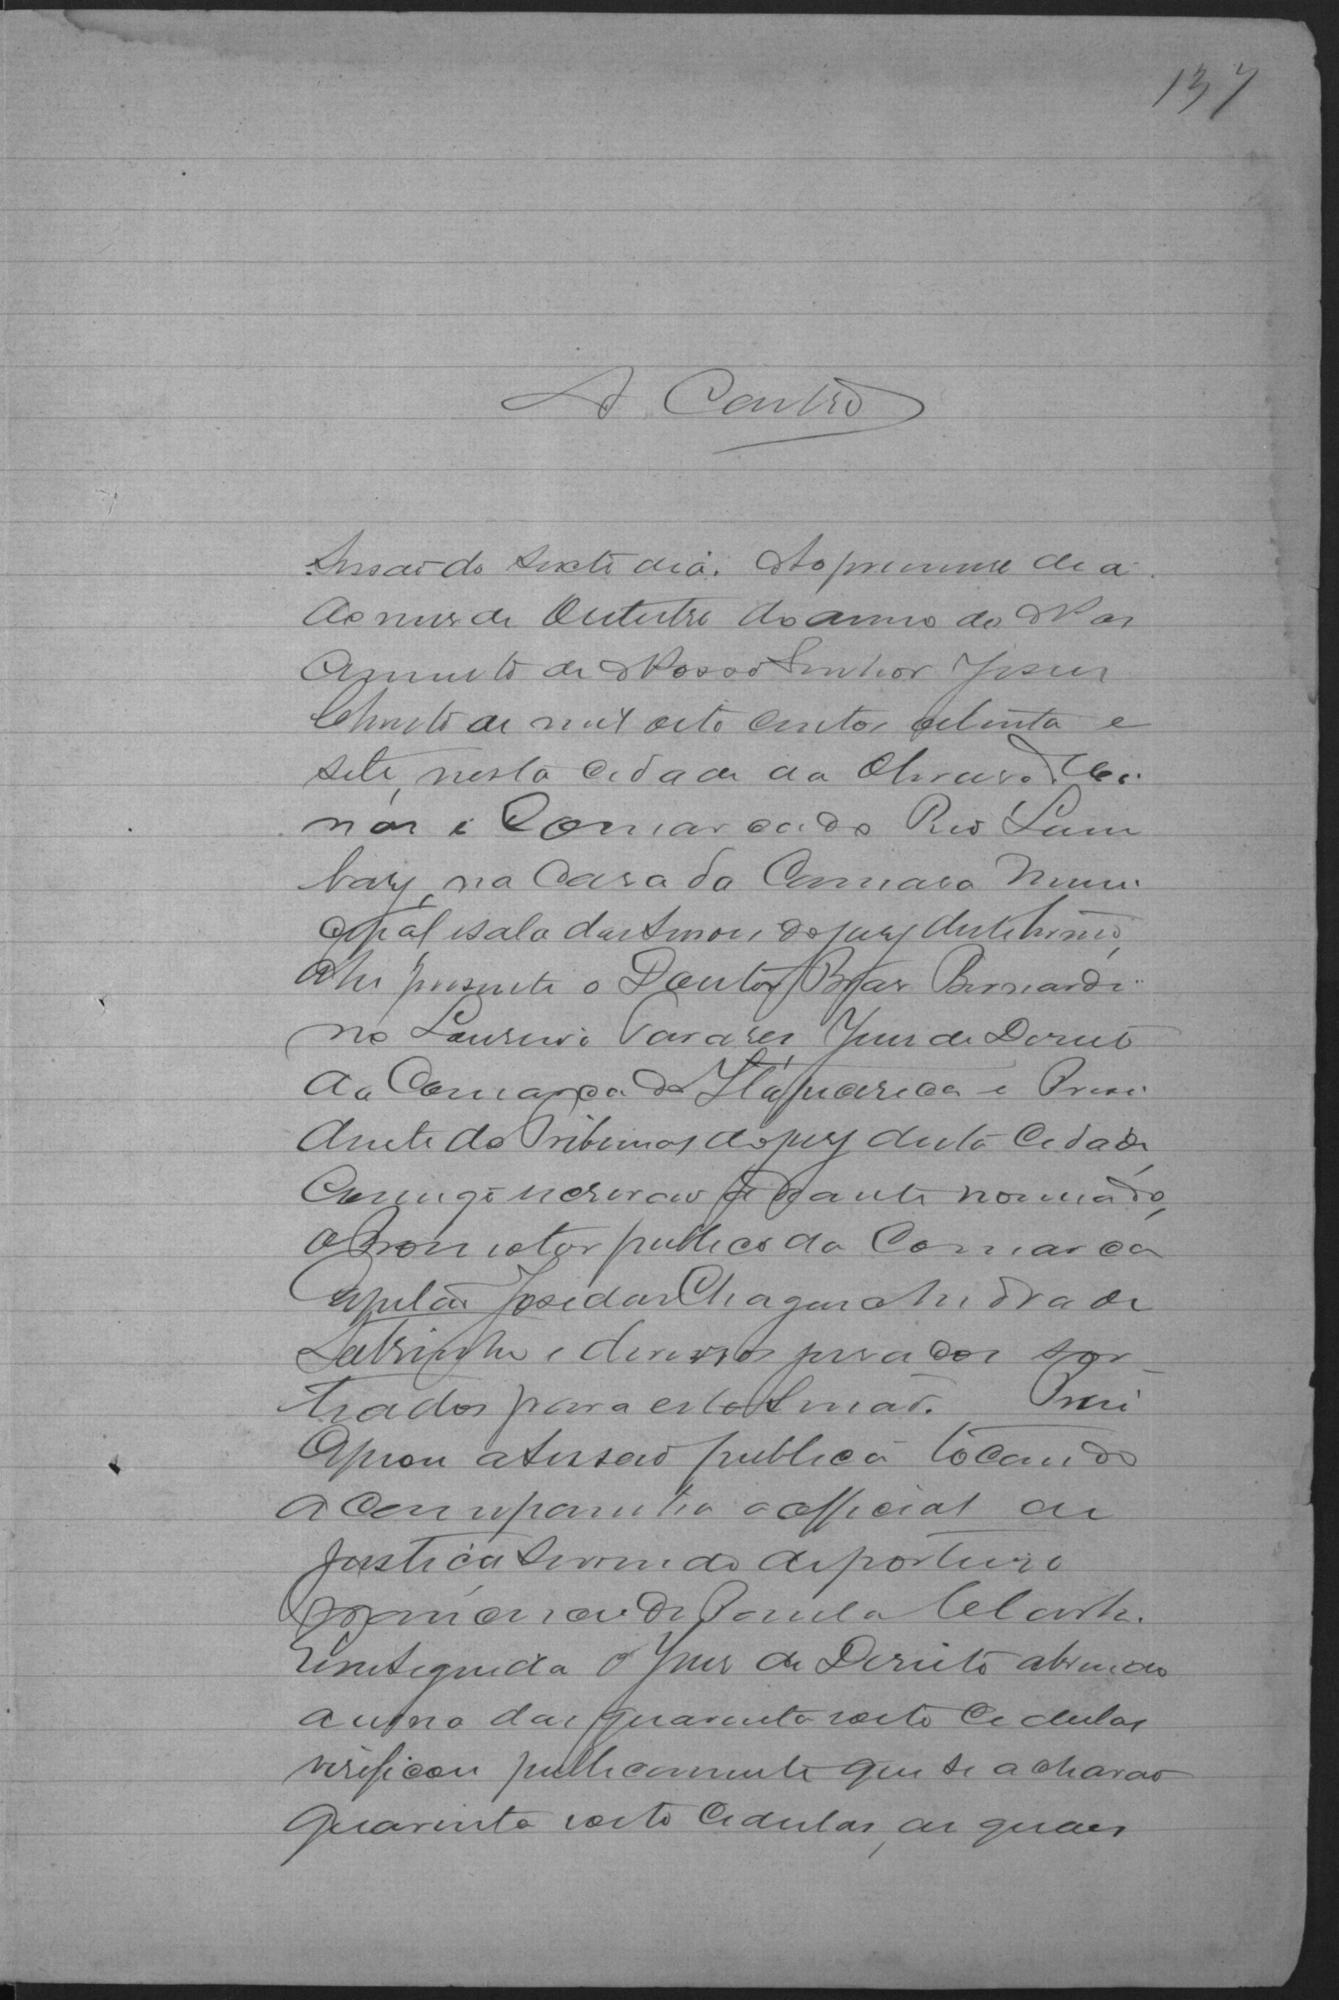 137
A. Castro
Sessão do sexto dia. Ao primeiro dia
do mes de Outubro do anno do Nas
cimento de Nosso Senhor Jesus
Christo de mil oito centos oitenta e
sete, nesta cidade da
e Comarca do Rio
na Casa da Camara Muni
cipal e sala das Sessões do jury deste termo,
ahi presente o Doutor Braz Bernardi
no Loureiro Tavares, Juiz de Direito
da Comarca de Itaparica e Presi
dente do Tribunal do jury desta cidade,
comigo escrivão adiante nomeado,
o Promotor publico da Comarca
Capitão José das Chagas Andrade
Sobrinho e diversos jurados sor
teados para esta Sessão. Prin
cipiou a Sessão publica tocando
a campainha o official de
Justiça servindo de porteiro
de Paula
Em seguida o Juiz de Direito abrindo
a urna das quarenta e oito cedulas
verificou publicamente que se acharão
quarenta e oito cedulas, as quaes